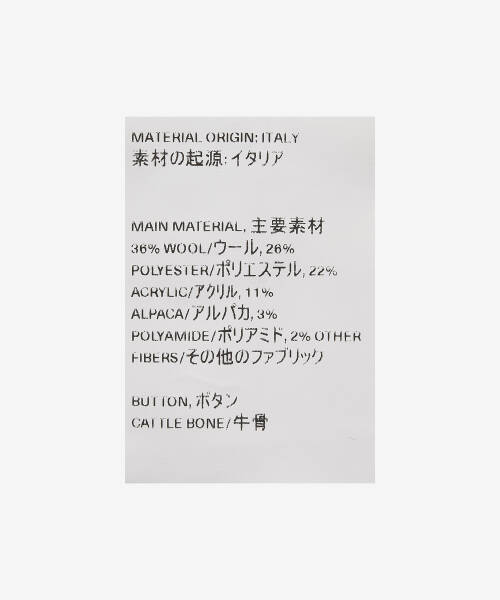 MATERIAL ORIGIN: ITALY
素材の起源: イタリア
MAIN MATERIAL, 主要素材
36% WOOL/ウール, 26%
POLYESTER/ポリエステル, 22%
ACRYLIC/アクリル, 11%
ALPACA/アルパカ, 3%
POLYAMIDE/ポリアミド, 2% OTHER
FIBERS/その他のファブリック
BUTTON, ボタン
CATTLE BONE/牛骨